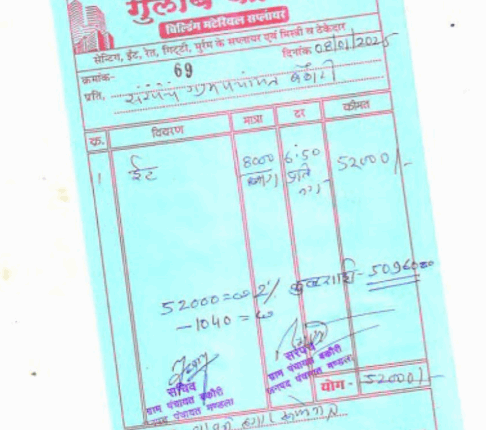 गुलाब
बिल्डिंग मटेरियल सप्लायर
सेन्टिंग, ईंट, रेत, गिट्टी, मुरुम के सप्लायर एवं मिस्त्री व ठेकेदार
क्रमांक- 69 दिनांक 08/01/2025
प्रति, सरपंच ग्राम पंचायत बकौरी
क्र. विवरण मात्रा दर कीमत
1 ईंट 8000 6.50 52000/-
नग प्रति
नग
52000=00 2% कुल राशि- 50960=00
-1040=00
सचिव
ग्राम पंचायत बकौरी
जनपद पंचायत मण्डला
सरपंच
ग्राम पंचायत बकौरी
जनपद पंचायत मण्डला
योग- 52000/-